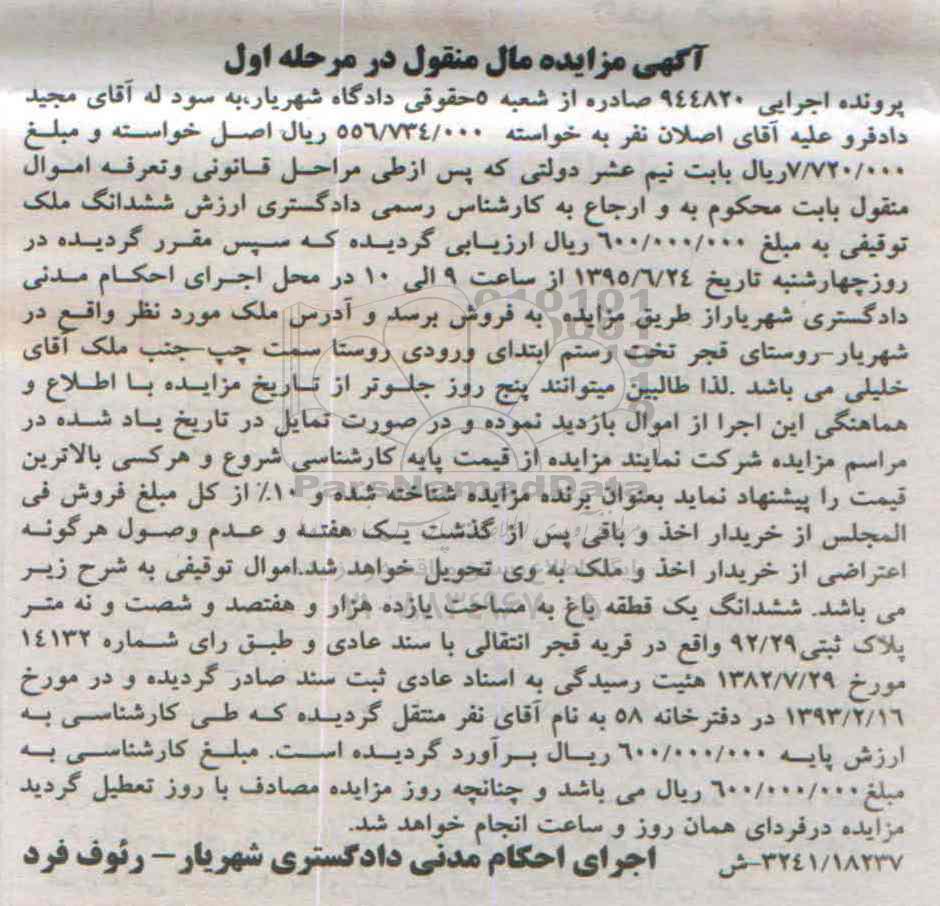 آگهی مزایده مال منقول در مرحله اول
پرونده اجرایی ۹٤٤۸۲۰ صادره از شعبه ۵حقوقی دادگاه شهریار،به سود له آقای مجید
دادفرو علیه آقای اصلان نفر به خواسته ۵۵٦/۷۳٤/۰۰۰ ریال اصل خواسته و مبلغ
۷/۷۲۰/۰۰۰ریال بابت نیم عشر دولتی که پس ازطی مراحل قانونی وتعرفه اموال
منقول بابت محکوم به و ارجاع به کارشناس رسمی دادگستری ارزش ششدانگ ملک
توقیفی به مبلغ ٦۰۰/۰۰۰/۰۰۰ ریال ارزیابی گردیده که سپس مقرر گردیده در
روزچهارشنبه تاریخ ۱۳۹۵/٦/۲٤ از ساعت ۹ الی ۱۰ در محل اجرای احکام مدنی
دادگستری شهریاراز طریق مزایده به فروش برسد و آدرس ملک مورد نظر واقع در
شهریار-روستای قجر تخت رستم ابتدای ورودی روستا سمت چپ-جنب ملک آقای
خلیلی می باشد .لذا طالبین میتوانند پنج روز جلوتر از تاریخ مزایده با اطلاع و
هماهنگی این اجرا از اموال بازدید نموده و در صورت تمایل در تاریخ یاد شده در
مراسم مزایده شرکت نمایند مزایده از قیمت پایه کارشناسی شروع و هرکسی بالاترین
قیمت را پیشنهاد نماید بعنوان برنده مزایده شناخته شده و ۱۰٪ از کل مبلغ فروش فی
المجلس از خریدار اخذ و باقی پس از گذشت یک هفته و عدم وصول هرگونه
اعتراضی از خریدار اخذ و ملک به وی تحویل خواهد شد.اموال توقیفی به شرح زیر
می باشد. ششدانگ یک قطقه باغ به مساحت یازده هزار و هفتصد و شصت و نه متر
پلاک ثبتی۹۲/۲۹ واقع در قریه قجر انتقالی با سند عادی و طبق رای شماره ۱٤۱۳۲
مورخ ۱۳۸۲/۷/۲۹ هئیت رسیدگی به اسناد عادی ثبت سند صادر گردیده و در مورخ
۱۳۹۳/۲/۱٦ در دفترخانه ۵۸ به نام آقای نفر منتقل گردیده که طی کارشناسی به
ارزش پایه ٦۰۰/۰۰۰/۰۰۰ ریال برآورد گردیده است. مبلغ کارشناسی به
مبلغ٦۰۰/۰۰۰/۰۰۰ ریال می باشد و چنانچه روز مزایده مصادف با روز تعطیل گردید
مزایده درفردای همان روز و ساعت انجام خواهد شد.
۳۲٤۱/۱۸۲۳۷-ش اجرای احکام مدنی دادگستری شهریار- رئوف فرد
ParsNamadData